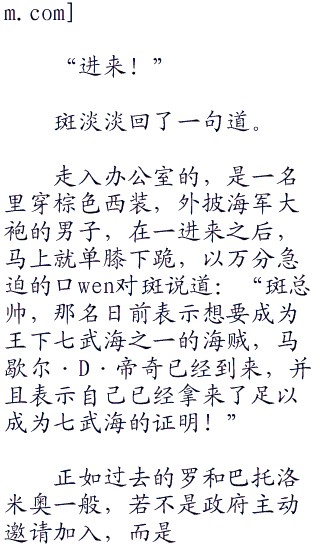 m.com]
“进来！”
斑淡淡回了一句道。
走入办公室的，是一名
里穿棕色西装，外披海军大
袍的男子，在一进来之后，
马上就单膝下跪，以万分急
迫的口wen对斑说道：“斑总
帅，那名日前表示想要成为
王下七武海之一的海贼，马
歇尔·D·帝奇已经到来，并
且表示自己已经拿来了足以
成为七武海的证明！”
正如过去的罗和巴托洛
米奥一般，若不是政府主动
邀请加入，而是